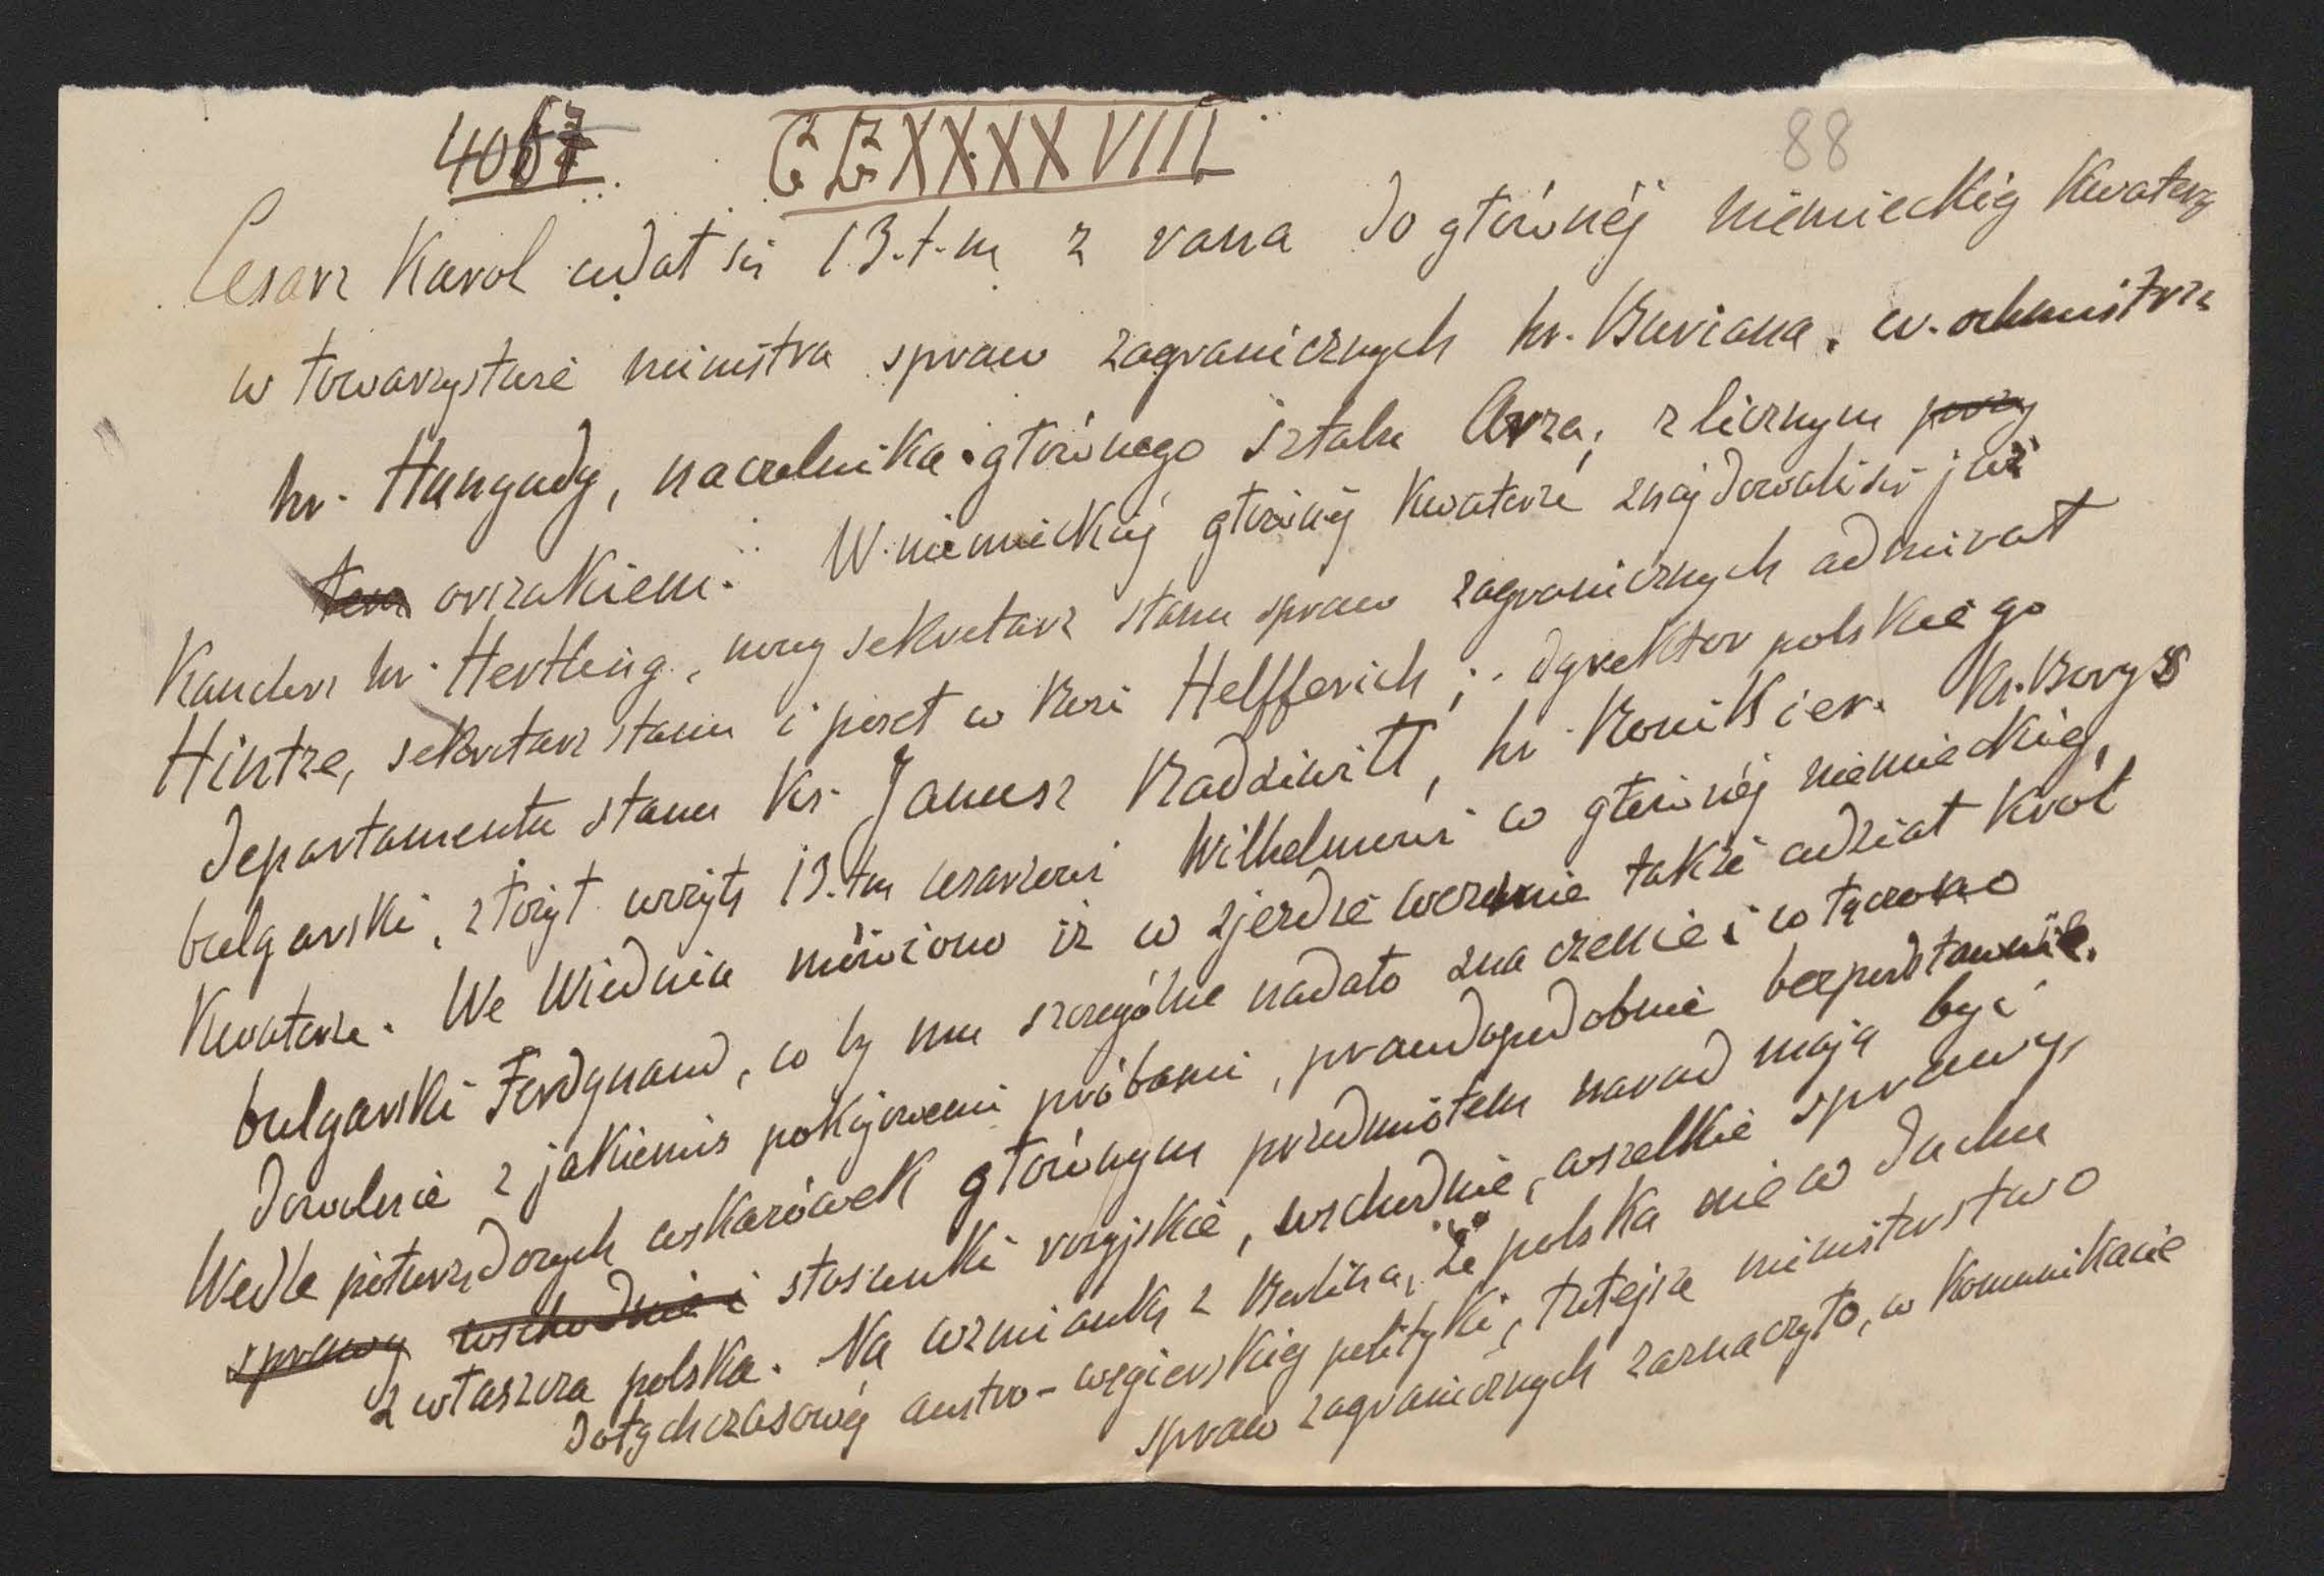 4067 CC XXXX VIII 88
Cesarz Karol udał się 13.t.m z rana do głównéj niemieckiéj Kwatery
w towarzystwie ministra spraw zagranicznych hr. Buriana, w. ochmistrza
hr. Hunyady, naczelnika głównego sztabu Arza, z licznym przy
tem orszakiem. W niemieckiéj głównéj Kwaterze znajdowali się już
Kanclerz hr. Hertling, nowy sekretarz stanu spraw zagranicznych admirał
Hintze, sekretarz stanu i poseł w Rosi Helfferich, dyrektor polskiego
departamentu stanu Ks. Janusz Radziwiłł, hr. Ronikier. Ks. Borys
bulgarski, złożył wizytę 13.tm cesarzowi Wilhelmowi w głównéj niemieckiéj,
Kwaterze. We Wiedniu mówiono iż w zjeździe weźmie także udział król
bulgarski Ferdynand, co by mu szczególne nadało znaczenie i łączono
dowolnie z jakiemiś pokojowemi próbami, prawdopodobnie bezpodstawnie.
Wedle półurzędowych wskazówek głównym przedmiotem narad mają być
sprawy wschodnie i stosunki rosyjskie, wschodnie, wszelkie sprawy,
zwłaszcza polska. Na wzmiankę z Berlina, że polska nie w duchu
dotychczasowéj austro-węgierskiéj polityki, tutejsze ministerstwo
spraw zagranicznych zaznaczyło, w Komunikacie